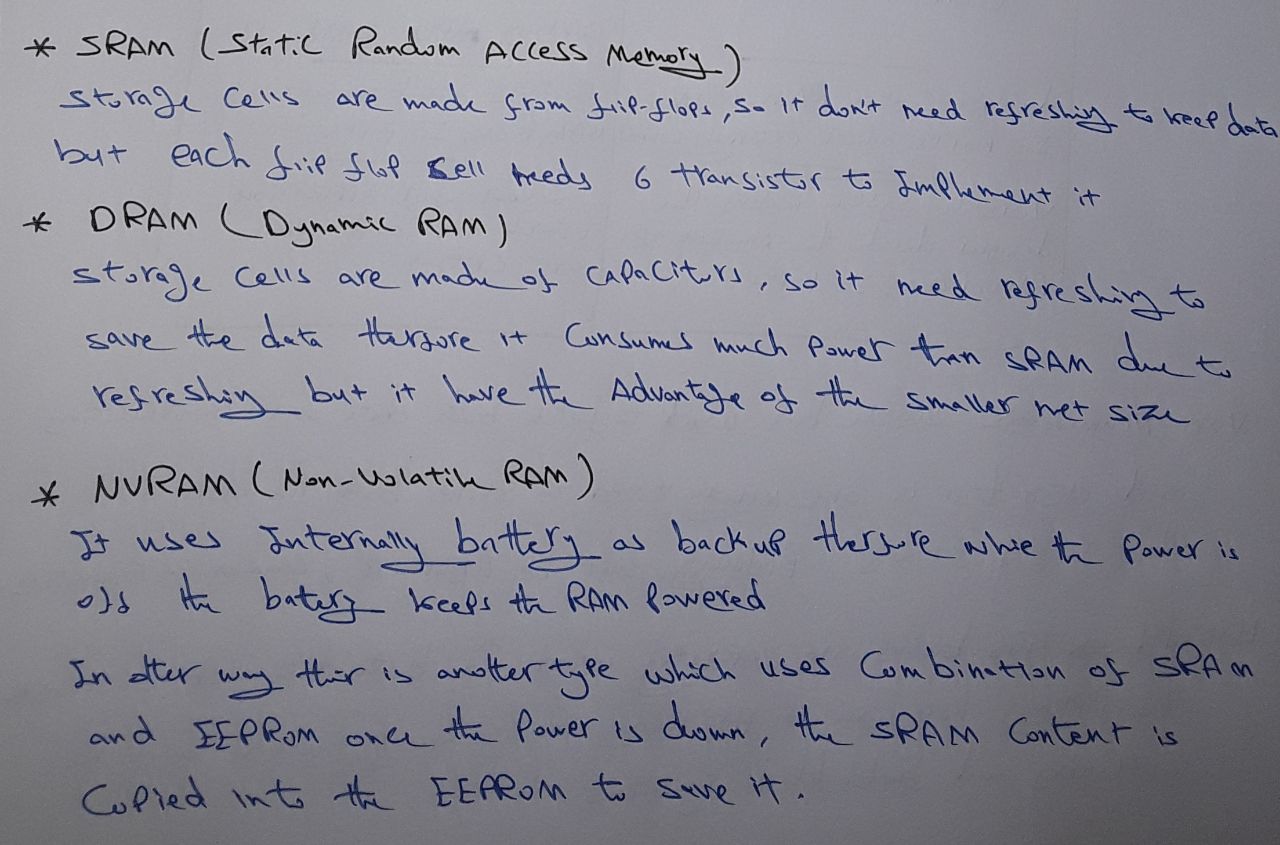 * SRAM (Static Random Access Memory)
storage cells are made from flip-flops, so it don't need refreshing to keep data
but each flip flop cell needs 6 transistor to Implement it
* DRAM (Dynamic RAM)
storage cells are made of capacitors, so it need refreshing to
save the data therfore it Consumes much Power than SRAM due to
refreshing but it have the Advantage of the smaller net size
* NVRAM (Non-Volatile RAM)
It uses Internally battery as backup therfore while the Power is
off the batery keeps the RAM Powered
In other way ther is another type which uses Combination of SRAM
and EEPROM once the Power is down, the SRAM Content is
Copied into the EEPROM to save it.